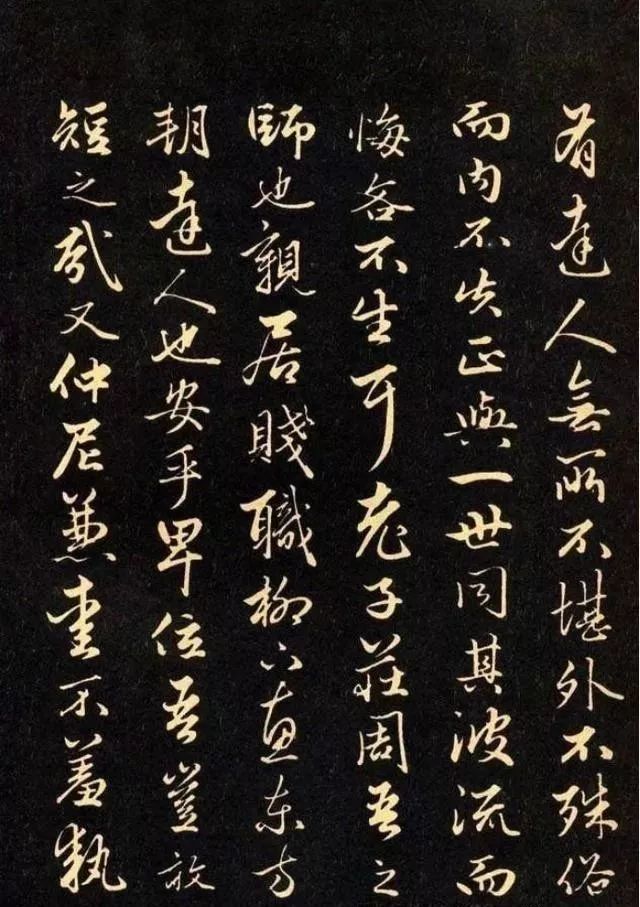 有達人無所不堪外不殊俗
而內不失正與一世同其波流而
悔吝不生耳老子莊周吾之
師也親居賤職柳下惠東方
朔達人也安乎卑位吾豈敢
短之哉又仲尼兼愛不羞執